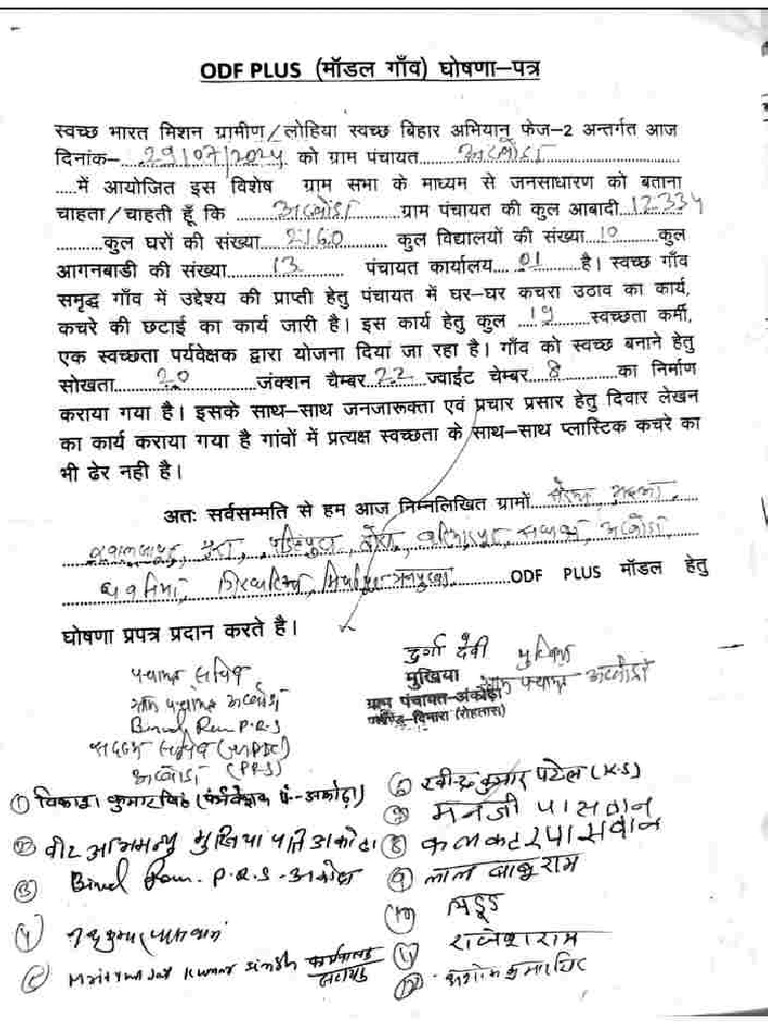 ODF PLUS (मॉडल गाँव) घोषणा–पत्र
स्वच्छ भारत मिशन ग्रामीण/लोहिया स्वच्छ बिहार अभियान फेज–2 अन्तर्गत आज
दिनांक– 29/07/2024 को ग्राम पंचायत अकोढ़ा
में आयोजित इस विशेष ग्राम सभा के माध्यम से जनसाधारण को बताना
चाहता/चाहती हूँ कि अकोढ़ा ग्राम पंचायत की कुल आबादी 12334
कुल घरों की संख्या 2160 कुल विद्यालयों की संख्या 10 कुल
आगनबाडी की संख्या 13 पंचायत कार्यालय 01 है। स्वच्छ गाँव
समृद्ध गाँव में उद्देश्य की प्राप्ती हेतु पंचायत में घर–घर कचरा उठाव का कार्य,
कचरे की छटाई का कार्य जारी है। इस कार्य हेतु कुल 19 स्वच्छता कर्मी,
एक स्वच्छता पर्यवेक्षक द्वारा योजना दिया जा रहा है। गाँव को स्वच्छ बनाने हेतु
सोखता 20 जंक्शन चैम्बर 22 ज्वाईंट चेम्बर 8 का निर्माण
कराया गया है। इसके साथ–साथ जनजारूक्ता एवं प्रचार प्रसार हेतु दिवार लेखन
का कार्य कराया गया है गांवों में प्रत्यक्ष स्वच्छता के साथ–साथ प्लास्टिक कचरे का
भी ढेर नही है।
अतः सर्वसम्मति से हम आज निम्नलिखित ग्रामों
अकोढ़ा
ODF PLUS मॉडल हेतु
घोषणा प्रपत्र प्रदान करते है।
दुर्गा देवी
मुखिया
मुखिया
ग्राम पंचायत अकोढ़ा
ग्राम पंचायत-अकोढ़ा
प्रखण्ड-दिनारा (रोहतास)
पंचायत सचिव
ग्राम पंचायत अकोढ़ा
Binod Ram P.R.S
अकोढ़ा (PRS)
① विकाश कुमार सिंह (पर्यवेक्षक पं.-अकोढ़ा)
② वीर अभिमन्यु मुखिया पति अकोढ़ा
③ Binod Ram. P.R.S - अकोढ़ा
④
⑤ Mritunjay Kumar Singh
⑥ रवीन्द्र कुमार पटेल (K.S)
⑦ मनजी पासवान
⑧ कलकटर पासवान
⑨ लाल बाबू राम
⑩
⑪ राजेश राम
⑫ अशोक कुमार सिंह